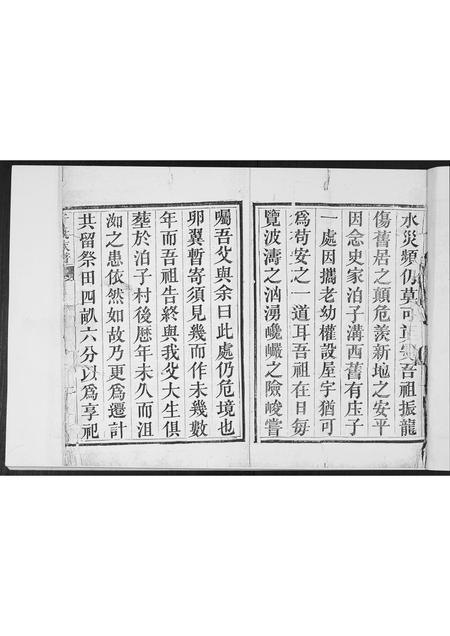 水災頻仍莫可 吾祖振龍
傷舊居之顛危羨新地之安平
因念史家泊子溝西舊有庄子
一處因攜老幼權設屋宇猶可
為苟安之一道耳吾祖在日每
覽波濤之洶湧巉巖之險峻嘗
囑吾父與余曰此處仍危境也
卵翼暫寄須見幾而作未幾數
年而吾祖告終與我父大生俱
塟於泊子村後歴年未久而沮
洳之患依然如故乃更為遷計
共留祭田四畝六分以為享祀